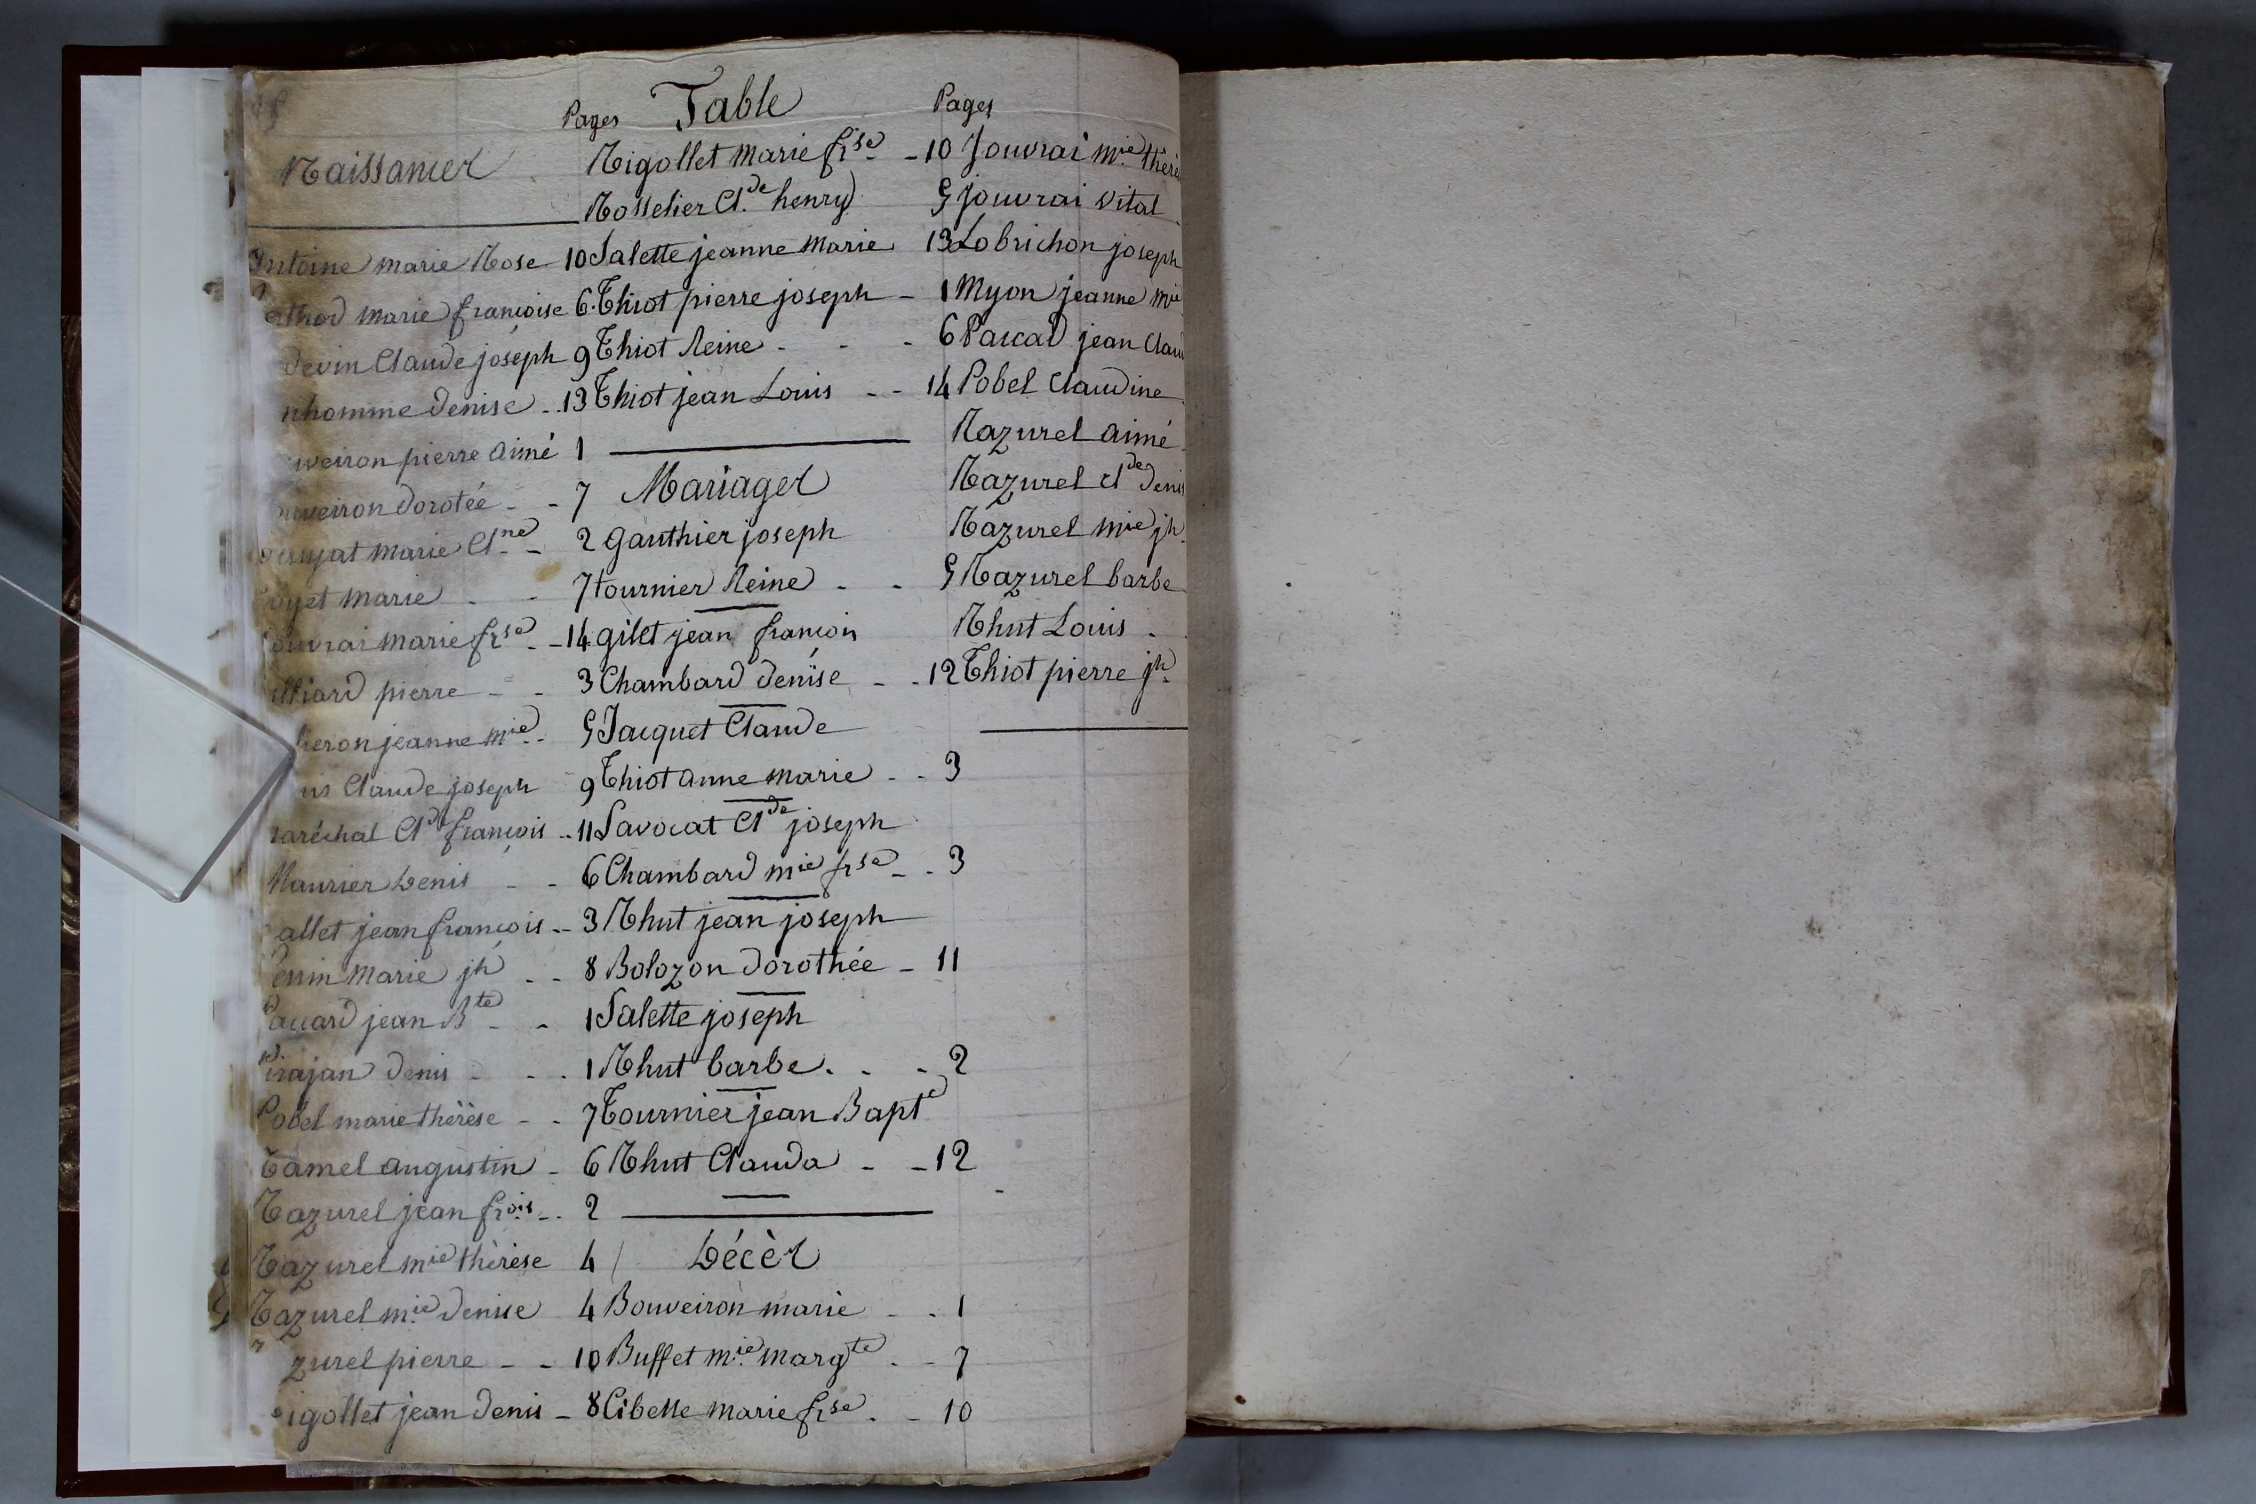 Table
Pages
Naissances
Antoine marie Rose 10
erthod marie françoise 6
devin Claude joseph 9
nhomme denise 13
uveiron pierre aimé 1
ouveiron dorotée 7
marie Clne 2
oyet marie 7
ouvrai marie frse 14
illiard pierre 3
heron jeanne mie 5
us Claude joseph 9
maréchal Clde françois 11
Maurier Denis 6
allet jean françois 3
marie jh 8
Paccard jean Bte 1
Pirajan denis 1
Pobel marie thérèse 7
Ramel augustin 6
Razurel jean frois 2
Razurel mie thérèse 4
Razurel mie denise 4
zurel pierre 10
igollet jean denis 8
Rigollet marie frse 10
Rosselier Clde henry 5
Salette jeanne marie 13
Thiot pierre joseph 1
Thiot Reine 6
Thiot jean Louis 14
Mariages
gauthier joseph
tournier Reine 5
gilet jean françois
Chambard denise 12
Jacquet Claude
Thiot anne marie 3
Lavocat Clde joseph
Chambard mie frse 3
Rhut jean joseph
Bolozon dorothée 11
Salette joseph
Rhut barbe 2
Tournier jean Bapte
Rhut Clauda 12
Décès
Bouveiron marie 1
Buffet mie margte 7
Cibelle marie frse 10
Pages
Jouvrai mie thérè
jouvrai vital
Lobrichon joseph
Myon jeanne mie
Pascal jean Claud
Pobel Claudine
Razurel aimé
Razurel Clde denis
Razurel mie jh
Razurel barbe
Rhut Louis
Thiot pierre jh